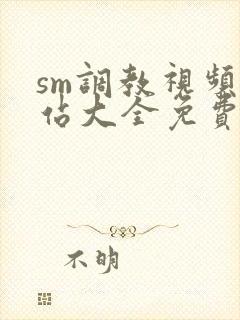 sm調教視頻
佔大全免費
不明